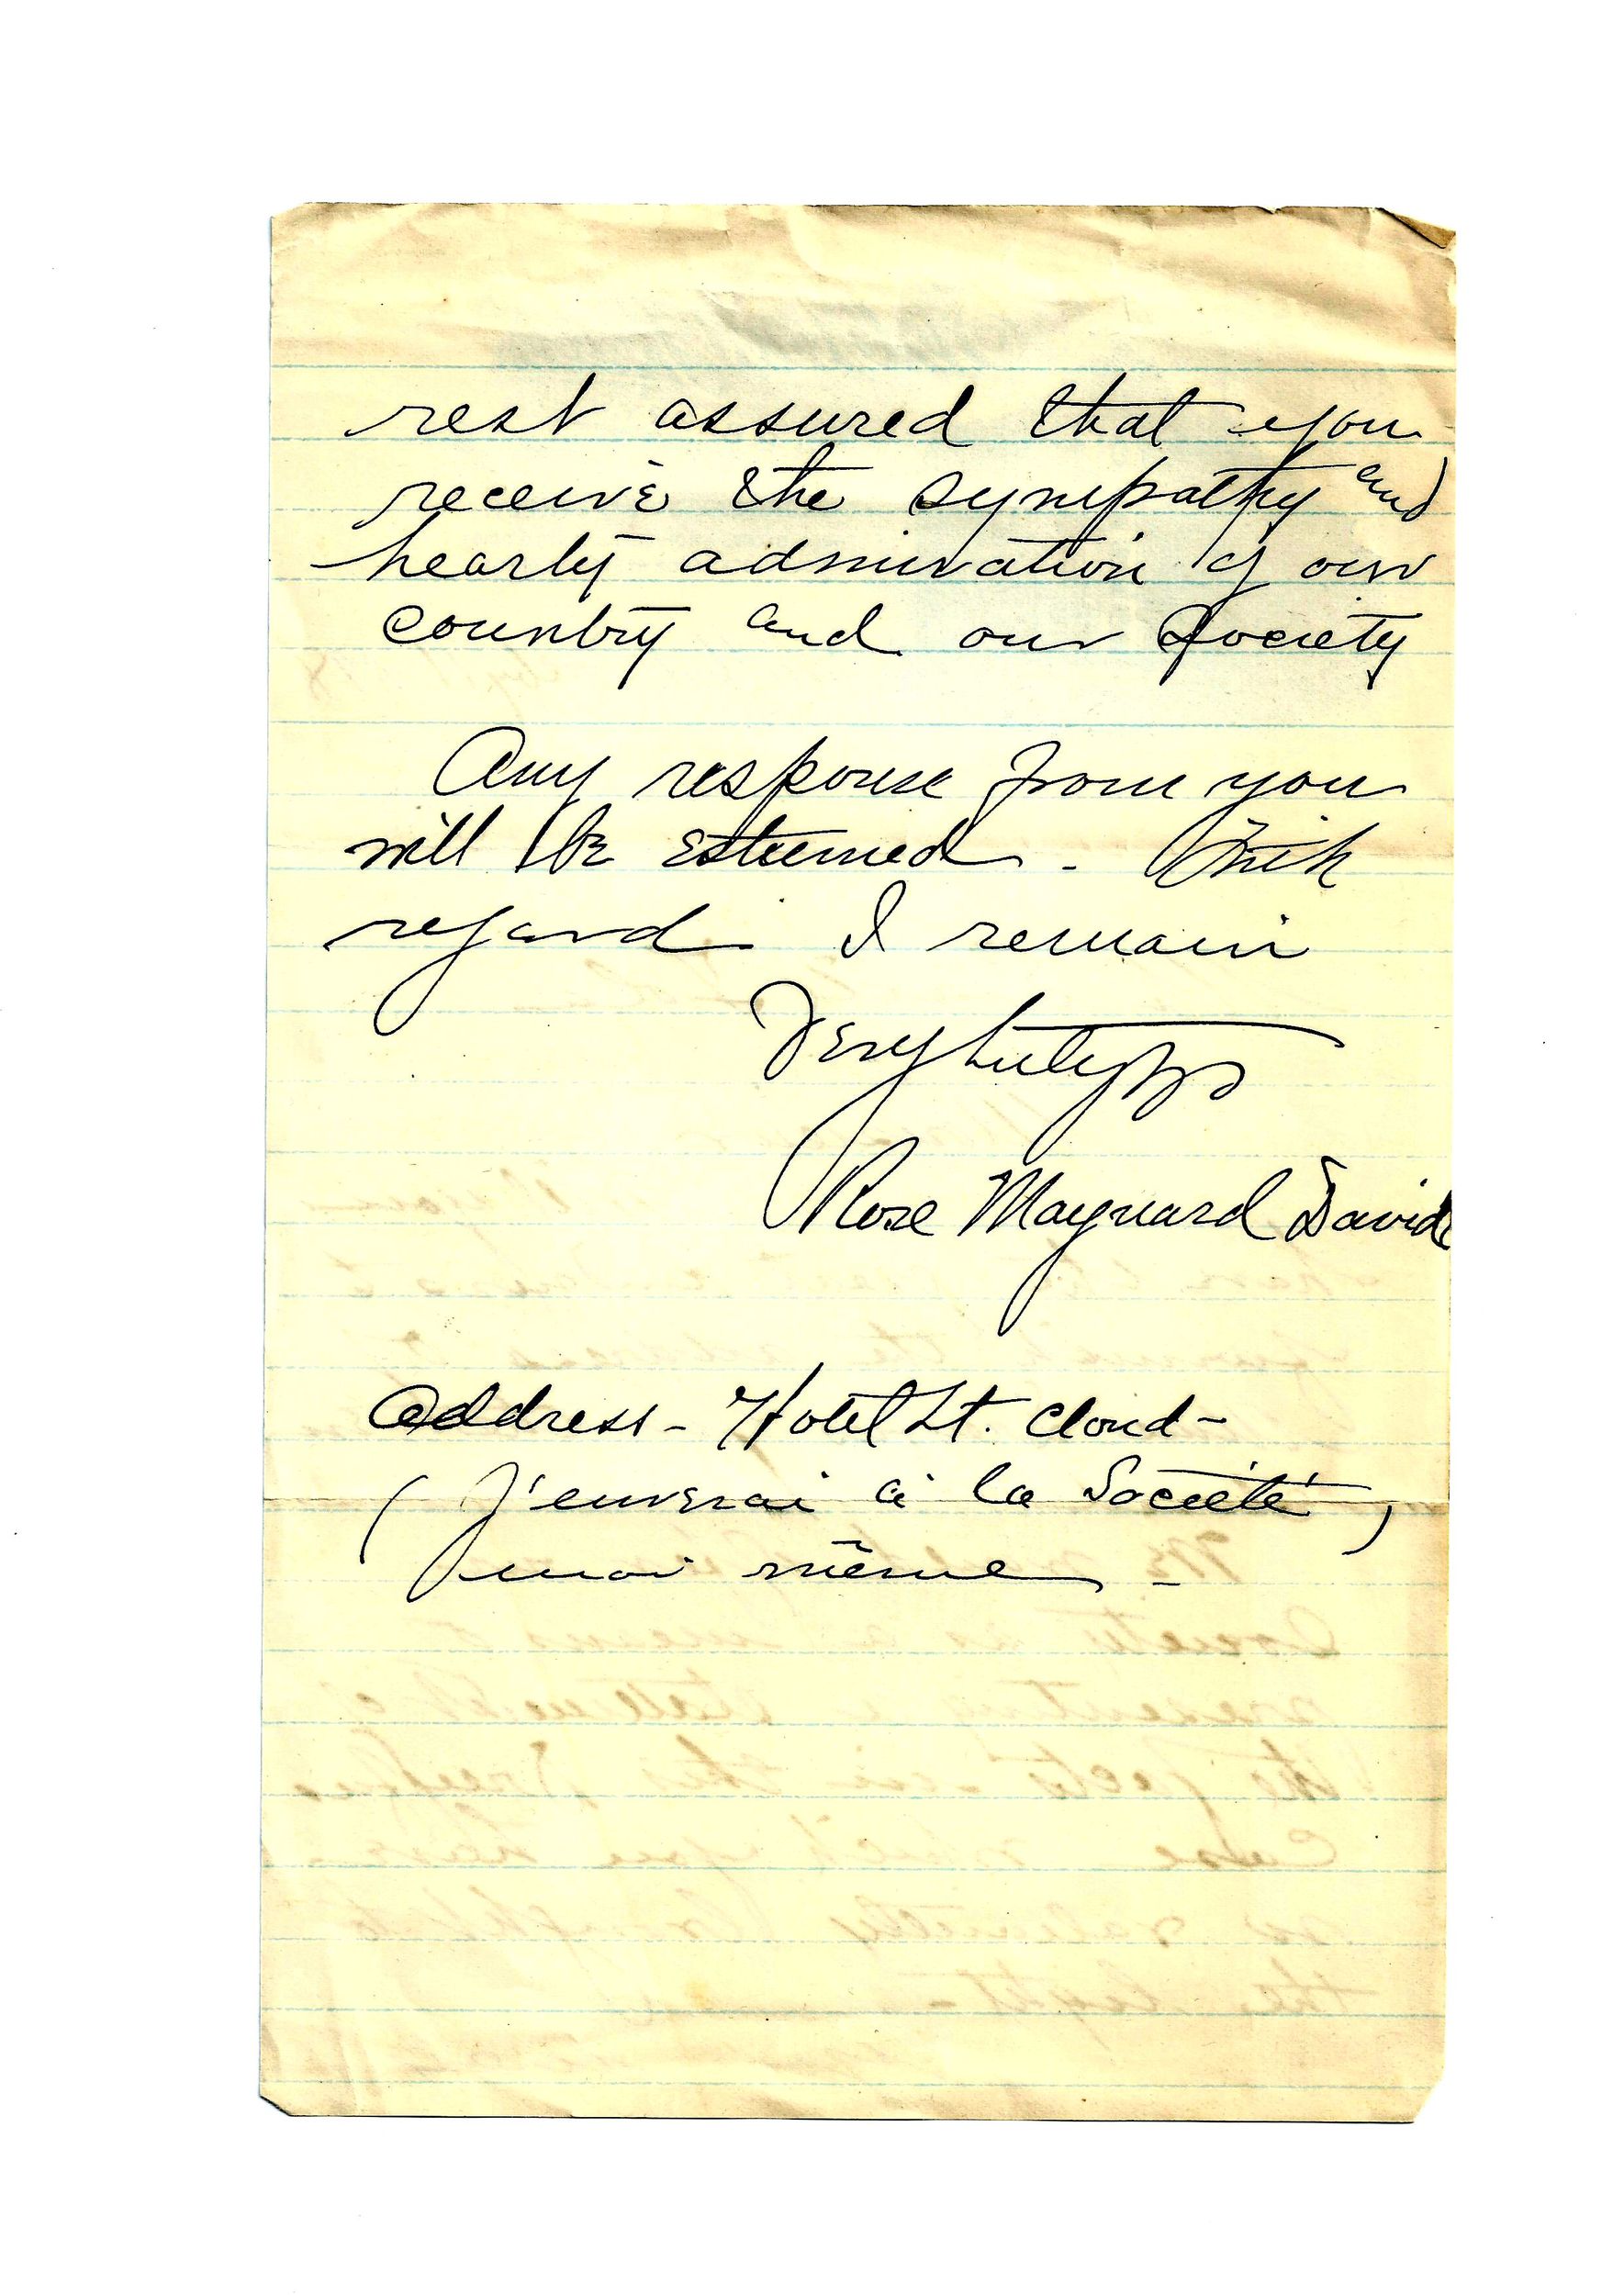 rest assured that you
receive the sympathy and
hearty admiration of our
country and our Society
Any response from you
will be esteemed. With
regard I remain
Very truly yrs
Rose Maynard David
Address - Hotel St. Cloud -
(J'enverai à la Société)
moi même -